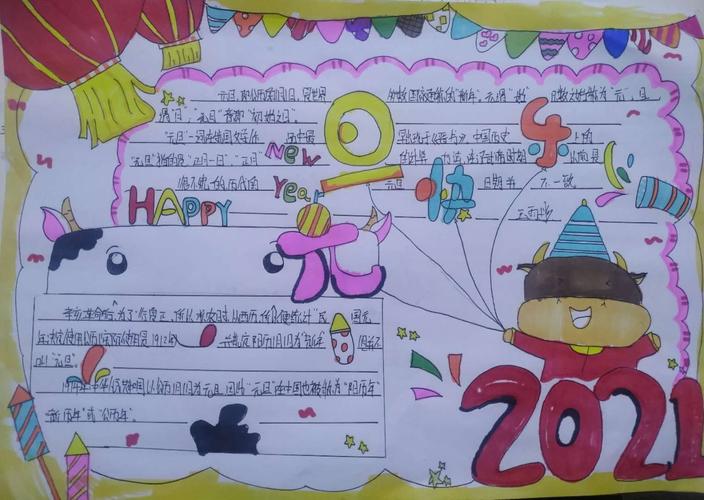 元旦，即公历的1月1日，是世界 数国家通称的"新年"。元，谓"始"，凡数之始称为"元"；旦，
谓"日"；"元旦"意即"初始之日"。
"元旦"一词 中国历史 上的
"元旦"指的是"正月一日"，"正月" 的计算方法，在汉武帝时期 以前是
很不统一的 历代的 元旦 日期 不一致
旦
快
乐
New
Year
HAPPY
元
辛亥革命后，为了"行夏正，所以顺农时，从西历，所以便统计"，民国元
年 使用公历 1912年 并规定阳历1月1日为"新年" 但并不
叫"元旦"。
1949年中华 以公历1月1日为元旦，因此"元旦"在中国也被称为"阳历年"
"新历年"或"公历年"。
2021